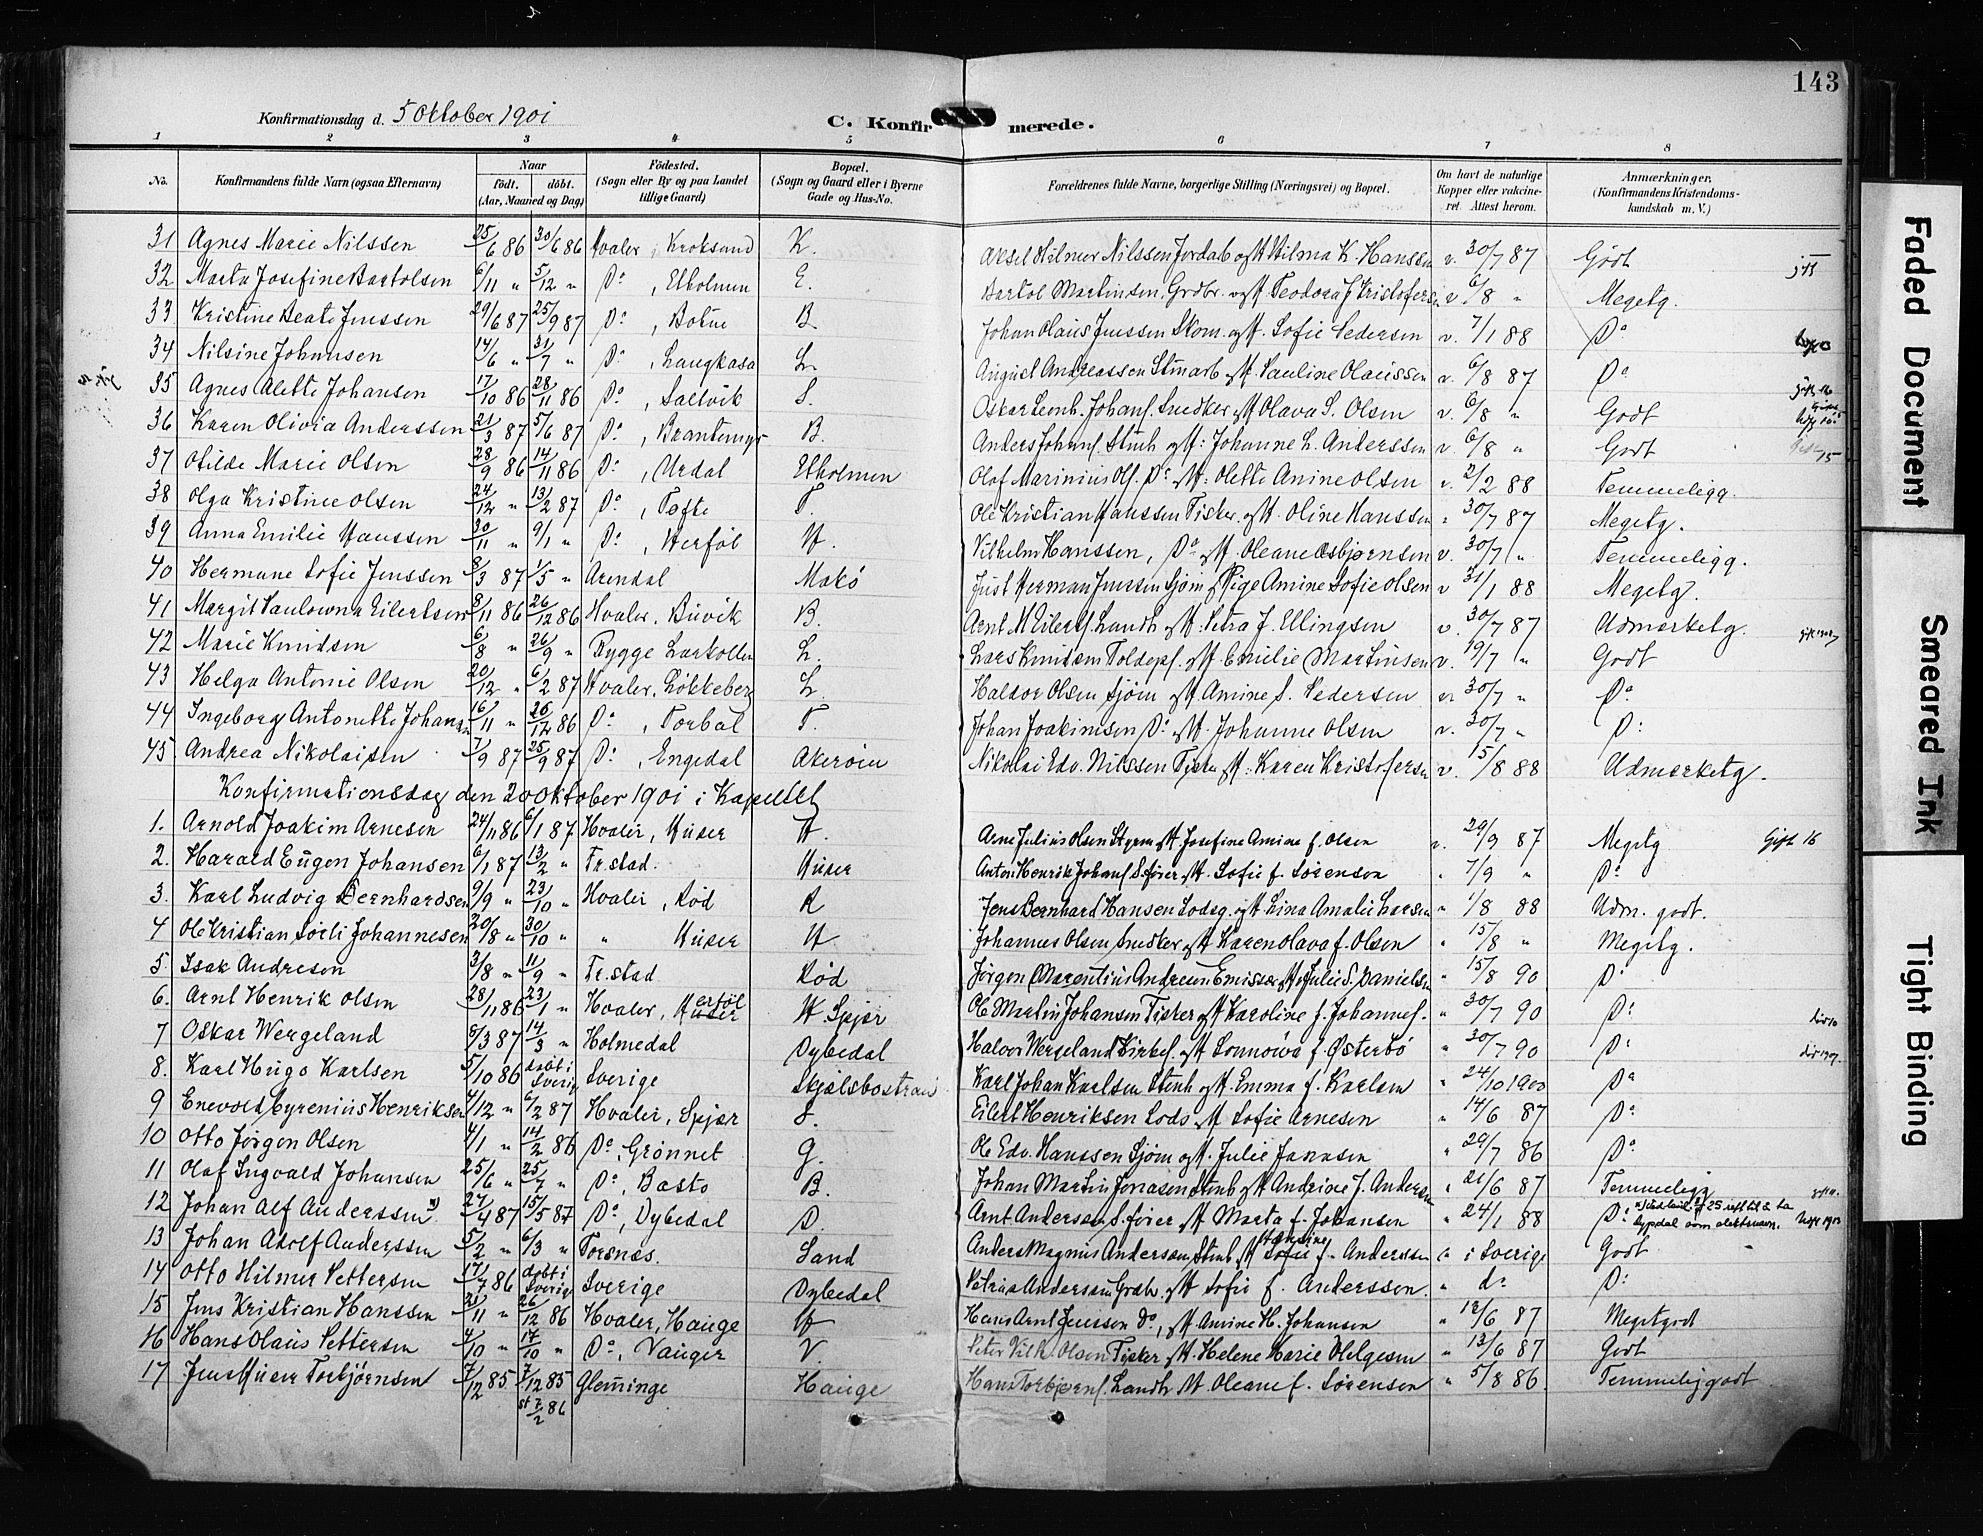 143
Konfirmationsdag d. 5 Oktober 1901
C. Konfirmerede.
1 2 3 4 5 6 7 8
No. Konfirmandens fulde Navn (ogsaa Efternavn) Naar födt. döbt. (Aar, Maaned og Dag) Födested. (Sogn eller By og paa Landet tillige Gaard) Bopæl. (Sogn og Gaard eller i Byerne Gade og Hus-No. Forældrenes fulde Navne, borgerlige Stilling (Næringsvei) og Bopæl. Om havt de naturlige Kopper eller vakcineret. Attest herom. Anmærkninger. (Konfirmandens Kristendomskundskab m. V.)
31 Agnes Marie Nilssen 25/6 86 30/6 86 Hvaler, Kroksund K. Aksel Hilmer Nilssen Jordarb og H Hilma K. Hanssen v. 30/7 87 Godt
32 Marta Josefine Bartolsen 6/11 " 5/12 " Do, Ekholmen E. Bartol Martinsen Grdbr. og H Teodora J Kristofersen v 6/8 " Megetg.
33 Kristine Beate Jenssen 29/6 87 25/9 87 Do, Botne B Johan Olaus Jenssen Skom. og H. Sofie Pedersen v. 7/1 88 Do
34 Nilsine Johansen 14/6 " 31/7 " Do, Langkasa L August Andreassen Stenarb og H. Pauline Olaussen v. 6/8 87 Do
35 Agnes Alette Johansen 17/10 86 28/11 86 Do, Saltvik S. Oskar Leonh. Johans. Snedker og H Olava S. Olsen v. 6/8 " Godt
36 Karen Olivia Anderssen 21/3 87 5/6 87 Do, B. Anders Johans. Stenh og H: Johanne L. Anderssen v. 6/8 " Godt
37 Otilde Marie Olsen 28/9 86 14/11 86 Do, Urdal Ekholmen Olaf Marinius Ols. Do og H: Olette Amine Olsen v. 2/2 88 Temmeligg.
38 Olga Kristine Olsen 24/12 " 13/2 87 Do, Tofte T. Ole Kristian Hanssen Fisker. og H. Oline Hanssen " 30/7 87 Megetg.
39 Anna Emilie Hanssen 30/11 " 9/1 " Do, Herföl H. Vilhelm Hanssen, Do og H. Oleane Asbjørnsen v. 30/7 " Temmeligg.
40 Hermane Sofie Jenssen 8/3 87 1/5 " Arendal Makö Just Herman Jenssen Sjöm og Pige Amine Sofie Olsen v 31/1 88 Megetg.
41 Margit Paulowna Eilertsen 8/11 86 26/12 86 Hvaler, Buvik B. Arnt M Eilerts. Landh og H. Petra J. Ellingsen v. 30/7 87 Udmerketg.
42 Marie Knudsen 6/8 " 26/9 " Rygge Larkollen L. Lars Knudsen Toldops. og H Emilie Martinsen v. 19/7 " Godt
43 Helga Antonie Olsen 20/12 " 6/2 87 Hvaler, Lökkeberg L. Haldor Olsen Sjöm og H Amine S. Pedersen v 30/7 " Do
44 Ingeborg Antonette Johansen 16/11 " 26/12 86 Do, Torbal T. Johan Joakimsen Do og H. Johanne Olsen v. 30/7 " Do
45 Andrea Nikolaisen 7/9 87 25/9 87 Do, Engedal Akeröien Nikolai Edv. Nilssen Fisker og H. Karen Kristofersen v. 15/8 88 Udmerketg.
Konfirmationsdag den 20 Oktober 1901 i Kapellet
1. Arnold Joakim Arnesen 24/11 86 6/1 87 Hvaler, Huser H. Arne Julius Olsen Styrm og H Josefine Amine f. Olsen v. 29/9 87 Megetg Gift 16
2. Harald Eugen Johansen 6/1 87 13/2 " Fr.stad. Huser Anton Henrik Johans S.förer og H. Sofie f. Sørensen " 7/9 " Do
3. Karl Ludvig Bernhardsen 9/9 " 23/10 " Hvaler, Röd R Jens Bernhard Hansen Lodsg. og H Lina Amalie Larsen " 1/8 88 Udm. godt.
4 Ole Kristian Sörli Johannesen 20/8 " 30/10 " " Huser H Johannes Olsen Snedker og H Karen Olava f. Olsen " 15/8 " Megetg.
5. Isak Andresen 3/8 " 11/9 " Fr.stad Röd Jörgen Marentius Andresen Emissær og H Julie S. Danielsen " 15/8 90 Do
6. Arnt Henrik Olsen 28/11 86 23/1 " Hvaler, Huser Herföl H. Spjær Ole Martin Johansen Fisker og H Karoline f. Johannes. " 30/7 90 Do
7 Oskar Wergeland 8/3 87 14/3 " Holmedal Dybedal Halvor Wergeland Kirkes. og H Sonnowa f Østerbö " 30/7 90 Do
8. Karl Hugo Karlsen 5/10 86 döbt i Sverig Sverige Skjælsbostrand Karl Johan Karlsen Stenh og H. Emma f. Karlsen " 24/10 1900 Do
9 Enevold Cyrenius Henriksen 4/12 " 6/2 87 Hvaler, Spjær S. Eilert Henriksen Lods og H Sofie Arnesen " 14/6 87 Do
10 Otto Jörgen Olsen 4/1 " 14/2 86 Do, Grönnet G. Ole Edv. Hanssen Sjöm og H. Julie Jonasen " 29/7 86 Do
11 Olaf Ingvald Johansen 25/6 " 25/7 " Do, Basto B. Johan Martin Jonasen Stenh og H Andrine J. Andersen " 21/6 87 Temmeligg
12 Johan Alf Anderssen x) 27/4 87 15/5 87 Do, Dybedal D. Arnt Andersen S.förer og H Marta f. Johansen " 24/1 88 Do
13 Johan Adolf Anderssen 5/2 " 6/3 " Torsnes. Sand Anders Magnus Andersen Stenh og H Sofie f. Anderssen " i Sverige Godt
14 Otto Hilmer Pettersen 17/7 86 döbt i Sverig Sverige Dybedal Petrus Andersen Grdbr. og H Sofie f. Anderssen. " do Do
15 Jens Kristian Hanssen 21/11 " 26/12 86 Hvaler, Hauge H Hans Arnt Jenssen Do, og H Amine H. Johansen " 12/6 87 Megetgodt
16 Hans Olaus Pettersen 4/10 " 17/10 " Do, Vauger V. Peter Vilh. Olsen Fisker og H. Helene Marie Helgesen " 13/6 87 Godt
17 Jens Huser Torbjørnsen 7/12 85 7/12 85 st 7/2 86 Glemminge Hauge Hans Torbjørns. Landh og H Oleane f. Sørensen " 5/8 86. Temmeliggodt
Faded Document
Smeared Ink
Tight Binding